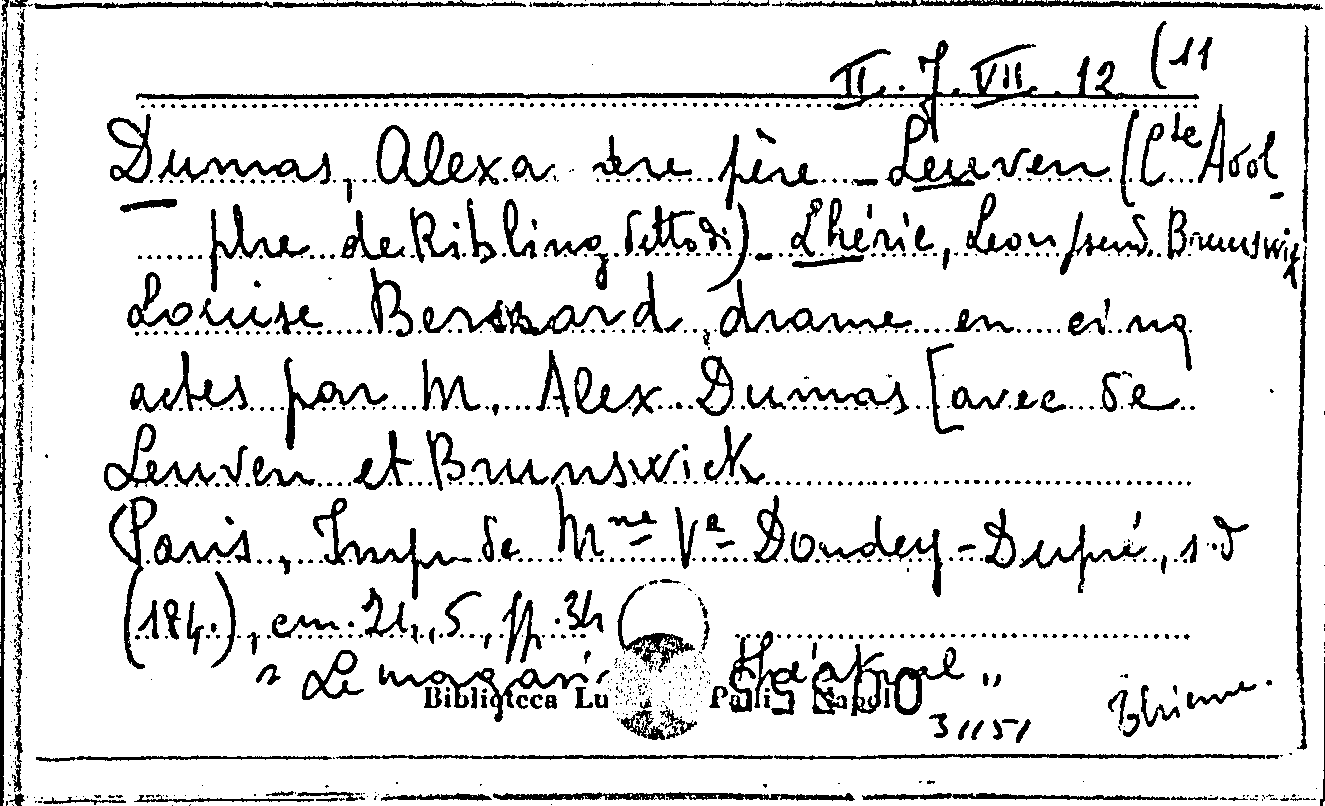 II. J. VII. 12 (11
Dumas, Alexa dre père - Leuven (Cte Adol-
phe de Ribbing detto di) - Lhérie, Leon pseud. Brunswik
Louise Bernard, drame en cinq
actes par M. Alex. Dumas [avec de
Leuven et Brunswick
Paris, Impr de Mme Ve Dondey-Dupré, s.d
(184.), cm. 21,5, pp. 34
"Le magasi théatral"
Biblioteca Lu Palli Napoli
31151